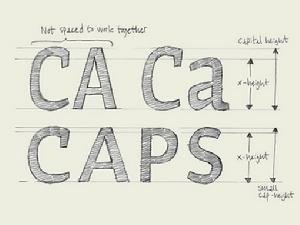 Not spaced to work together
Capital height
CA Ca
x-height
CAPS
x-height
small
cap-height